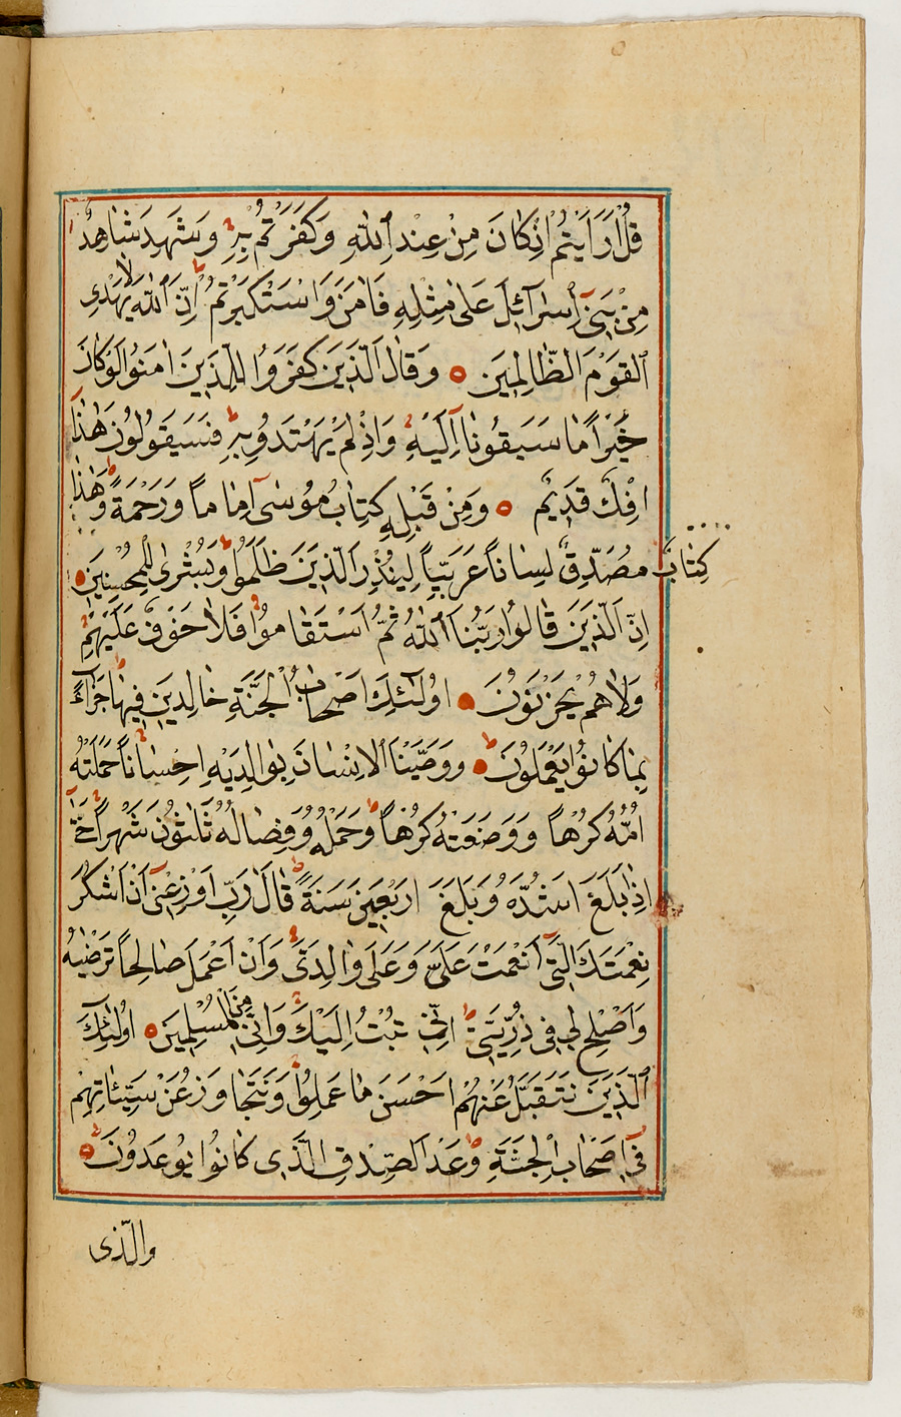 قُلْ اَرَاَيْتُمْ اِنْ كٰانَ مِنْ عِنْدِ اللّٰهِ وَكَفَرْتُمْ بِهِ وَشَهِدَ شٰاهِدٌ
مِنْ بَنىٓ اِسْرٰآئِلَ عَلٰى مِثْلِهِ فَاٰمَنَ وَاسْتَكْبَرْتُمْ اِنَّ اللّٰهَ لٰا يَهْدِى
الْقَوْمَ الظّٰالِمينَ وَقٰالَ الَّذينَ كَفَرُوا لِلَّذينَ اٰمَنُوا لَوْ كٰانَ
خَيْراً مٰا سَبَقُونٰٓا اِلَيْهِ وَاِذْ لَمْ يَهْتَدُوا بِهِ فَسَيَقُولُونَ هٰذٰٓا
اِفْكٌ قَديمٌ وَمِنْ قَبْلِهِ كِتٰابُ مُوسٰىٓ اِمٰاماً وَرَحْمَةً وَهٰذٰا
كِتٰابٌ مُصَدِّقٌ لِسٰاناً عَرَبِيّاً لِيُنْذِرَ الَّذينَ ظَلَمُوا وَبُشْرٰى لِلْمُحْسِنينَ
اِنَّ الَّذينَ قٰالُوا رَبُّنَا اللّٰهُ ثُمَّ اسْتَقٰامُوا فَلٰا خَوْفٌ عَلَيْهِمْ
وَلٰا هُمْ يَحْزَنُونَ اُولٰٓئِكَ اَصْحٰابُ الْجَنَّةِ خٰالِدينَ فيهٰا جَزٰآءً
بِمٰا كٰانُوا يَعْمَلُونَ وَوَصَّيْنَا الْاِنْسٰانَ بِوٰالِدَيْهِ اِحْسٰاناً حَمَلَتْهُ
اُمُّهُ كُرْهاً وَوَضَعَتْهُ كُرْهاً وَحَمْلُهُ وَفِصٰالُهُ ثَلٰثُونَ شَهْراً حَتّٰىٓ
اِذٰا بَلَغَ اَشُدَّهُ وَبَلَغَ اَرْبَعينَ سَنَةً قٰالَ رَبِّ اَوْزِعْنىٓ اَنْ اَشْكُرَ
نِعْمَتَكَ الَّتىٓ اَنْعَمْتَ عَلَيَّ وَعَلٰى وٰالِدَيَّ وَاَنْ اَعْمَلَ صٰالِحاً تَرْضٰيهُ
وَاَصْلِحْ لى فى ذُرِّيَّتى اِنّى تُبْتُ اِلَيْكَ وَاِنّى مِنَ الْمُسْلِمينَ اُولٰٓئِكَ
الَّذينَ نَتَقَبَّلُ عَنْهُمْ اَحْسَنَ مٰا عَمِلُوا وَنَتَجٰاوَزُ عَنْ سَيِّئٰاتِهِمْ
فىٓ اَصْحٰابِ الْجَنَّةِ وَعْدَ الصِّدْقِ الَّذى كٰانُوا يُوعَدُونَ
والّذى